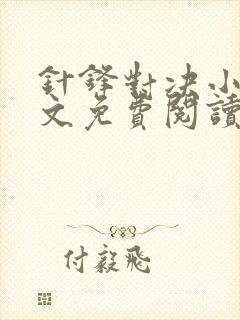 針鋒對決小
文免費閱讀
付毅飛